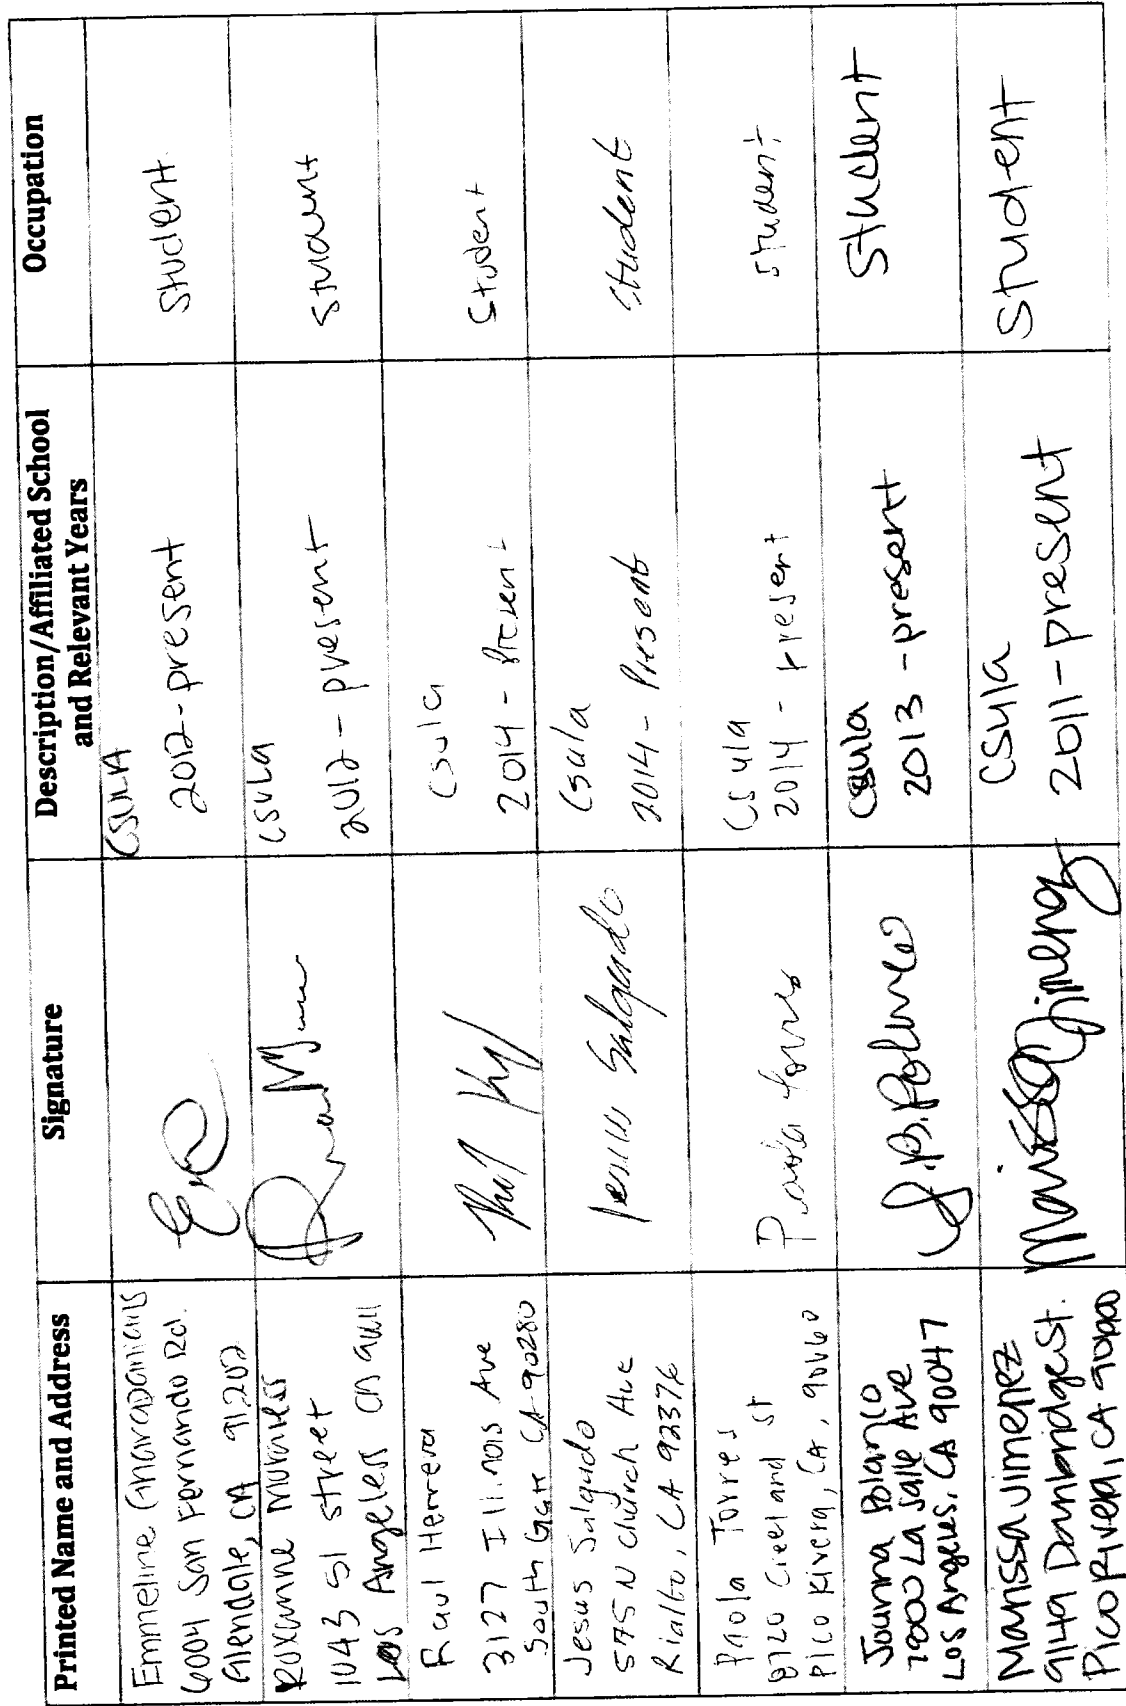 Printed Name and Address
Signature
Description/Affiliated School
and Relevant Years
Occupation
Emmeline
6004 San Fernando Rd.
Glendale, CA 91202
CSULA
2012-present
Student
Roxanne Morales
1043 51 street
Los Angeles CA
CSULA
2012-present
Student
Raul Herrera
3127 Illinois Ave
South Gate CA 90280
Csula
2014 - Present
Student
Jesus Salgado
575 N Church Ave
Rialto, CA 92376
Jesus Salgado
Csula
2014 - Present
Student
Paola Torres
Cleeland St
Pico Rivera, CA, 90660
Paola Torres
Csula
2014 - present
student
Polanco
La Salle Ave
Los Angeles, CA 90047
Polanco
Csula
2013 - present
Student
Marissa Jimenez
9149 Danbridge St.
Pico Rivera, CA 90660
Marissa Jimenez
CSULA
2011-present
Student